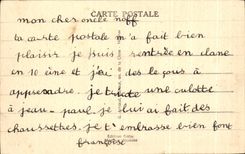 CARTE POSTALE
mon cher oncle noff
ta carte postale m'a fait bien
plaisir je suis rentrée en clane
en 10 ème et j'ai des leçons à
apprendre. je tricote une culotte
à jean-paul je lui ai fait des
chaussettres. je t'embrasse bien font
françoise